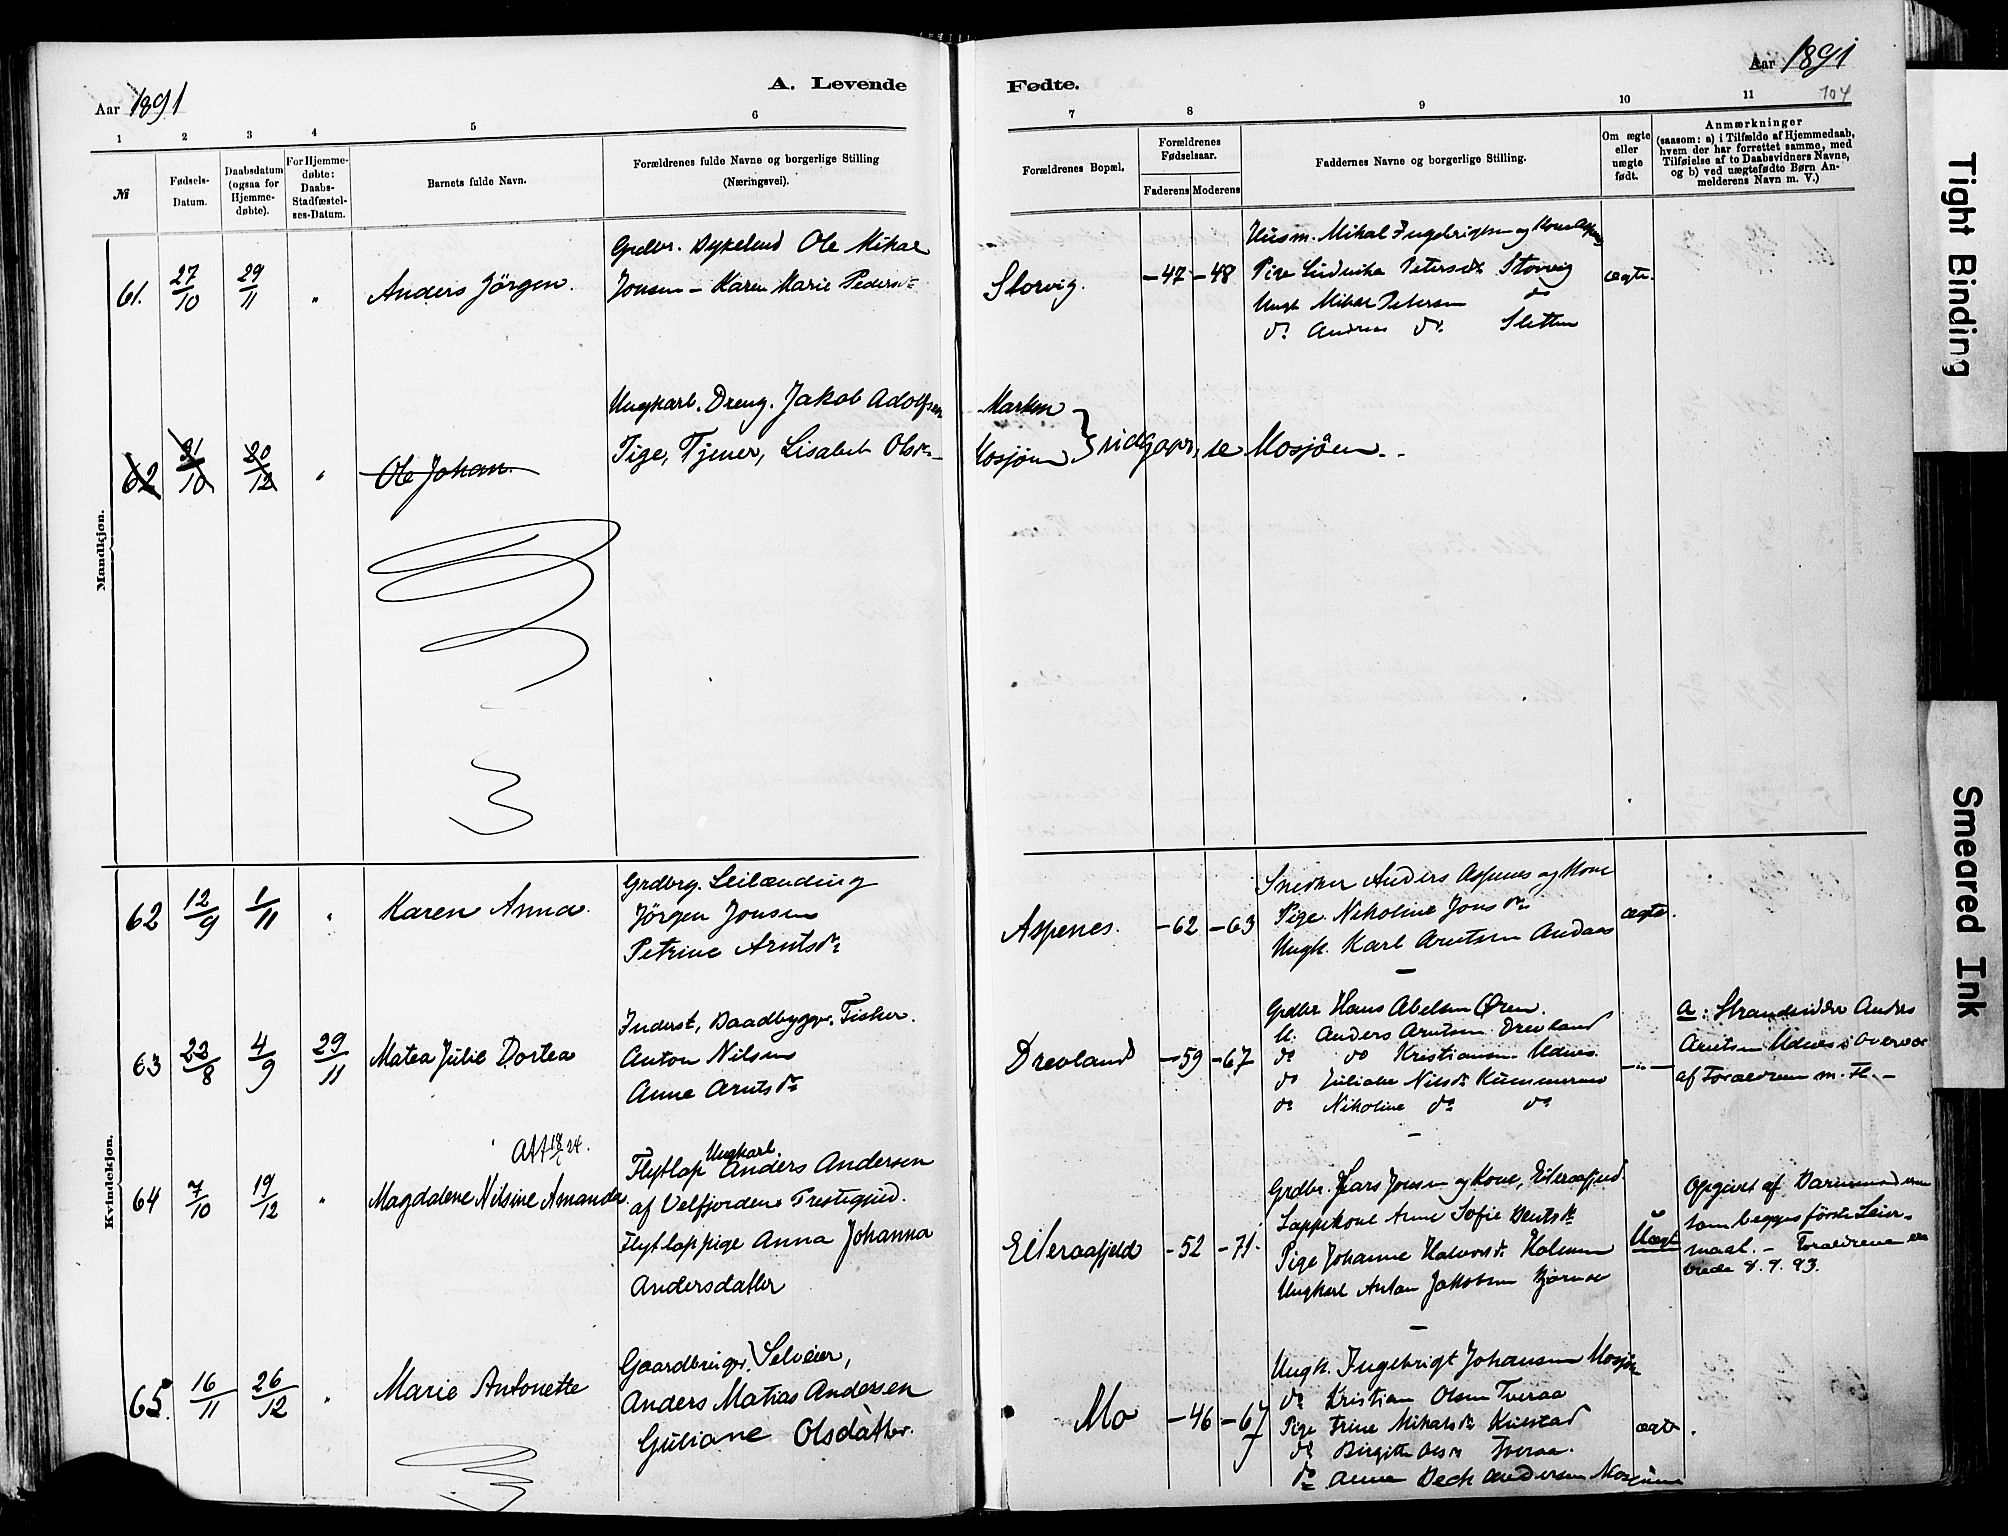 Aar 1891
A. Levende
Fødte.
Aar 1891
104
1 2 3 4 5 6 7 8 9 10 11
№
Fødsels-
Datum.
Daabsdatum
(ogsaa for
Hjemme-
døbte).
For Hjemme-
døbte:
Daabs-
Stadfæstel-
ses-Datum.
Barnets fulde Navn.
Forældrenes fulde Navne og borgerlige Stilling
(Næringsvei).
Forældrenes Bopæl.
Forældrenes
Fødselsaar.
Faderens Moderens
Faddernes Navne og borgerlige Stilling.
Om ægte
eller
uægte
født.
Anmærkninger
(saasom: a) i Tilfælde af Hjemmedaab,
hvem der har forrettet samme, med
Tilføielse af to Daabsvidners Navne,
og b) ved uægtefødte Børn An-
melderens Navn m. V.)
Mandkjøn.
61. 27/10 29/11 " Anders Jörgen.
Grdbr. Dykeland Ole Mikal
Jonsen - Karen Marie Pedersdr
Storvig. -47 -48
Husm. Mikal Ingebrigtsen og Kone
Pige Ludvika Petersdr Storvig
Ungk Mikal Petersen do
do Andreas do Sletten
ægte.
62 21/10 20/12 " Ole Johan.
Ungkarl. Dreng. Jakob Adolfsen
Pige, Tjener, Lisabet Olsdr
Marken
Mosjöen } udgaar, se Mosjöen.
Kvindekjøn.
62 12/9 1/11 " Karen Anna.
Grdbrg. Leilænding
Jörgen Jonsen
Petrine Arntsdr
Aspenes. -62 -63
Snedker Anders Aspenes og Kone
Pige. Nikoline Jonsdr
Ungk. Karl Arntsen Andaas
ægte.
63 22/8 4/9 29/11 Matea Julie Dortea
Inderst, Baadbygger, Fisker.
Anton Nilsen
Anne Arntsdr
Drevland -59 -67
Grdbr Hans Abelsen Øren.
U. Anders Arntsen Drevland
do do Kristiansen Udnes.
do Nilsdr
do Nikoline do do
-"-
a: Strandsidder Anders
Arntsen Udnes i Overvær
af Forældrene m. Fl. -
Att 18/ 24.
64 7/10 19/12 " Magdalene Nilsine Amanda
Flytlap Ungkarl. Anders Andersen
af Velfjordens Prestegjeld.
Flytlappige Anna Johanna
Andersdatter
Eiteraafjeld -52 -71.
Grdbr. Lars Jonsen og Kone, Eiteraafjeld.
Lappekone Anne Sofie Bentsdr
Pige Johanne Halvorsdr Holmen
Ungkarl Anton Jakobsen
Uægte
Opgivet af Barnemoderen
som begges förste Leier-
maal. - Forældrene ere
viede 8.7.93.
65. 16/11 26/12 " Marie Antonette
Gaardbruger, Selveier,
Anders Matias Andersen
Guliane Olsdatter.
Mo -46 -67
Ungk. Ingebrigt Johansen Mosjöen
do Kristian Olsen Tveraa
Pige Trine Mikalsdr Kulstad
do Birgitte Olsdr Tveraa.
do Anna Beck Andersen Mosjöen
ægte.
Tight Binding
Smeared Ink